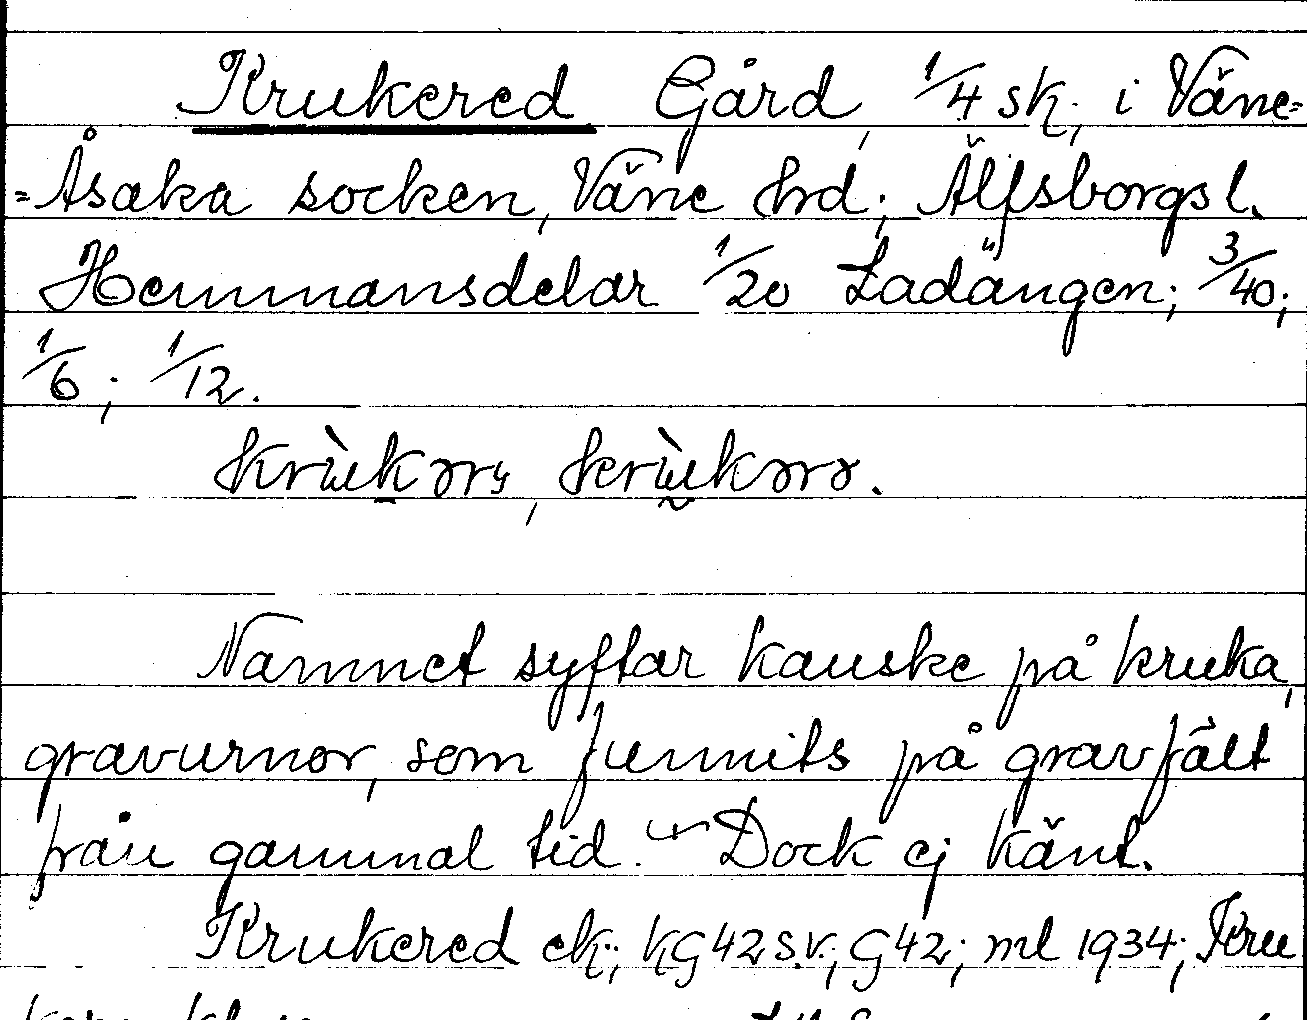 Krukered Gård, 1/4 sk; i Väne=
=Åsaka socken, Väne Hrd; Älfsborgs l.
Hemmansdelar 1/20 Ladängen; 3/40;
1/6; 1/12.
Namnet syftar kanske på kruka,
gravurnor, som funnits på gravfält
från gammal tid. Dock ej känt.
Krukered ek; KG 42 s.v.; G 42; ml 1934; Kru